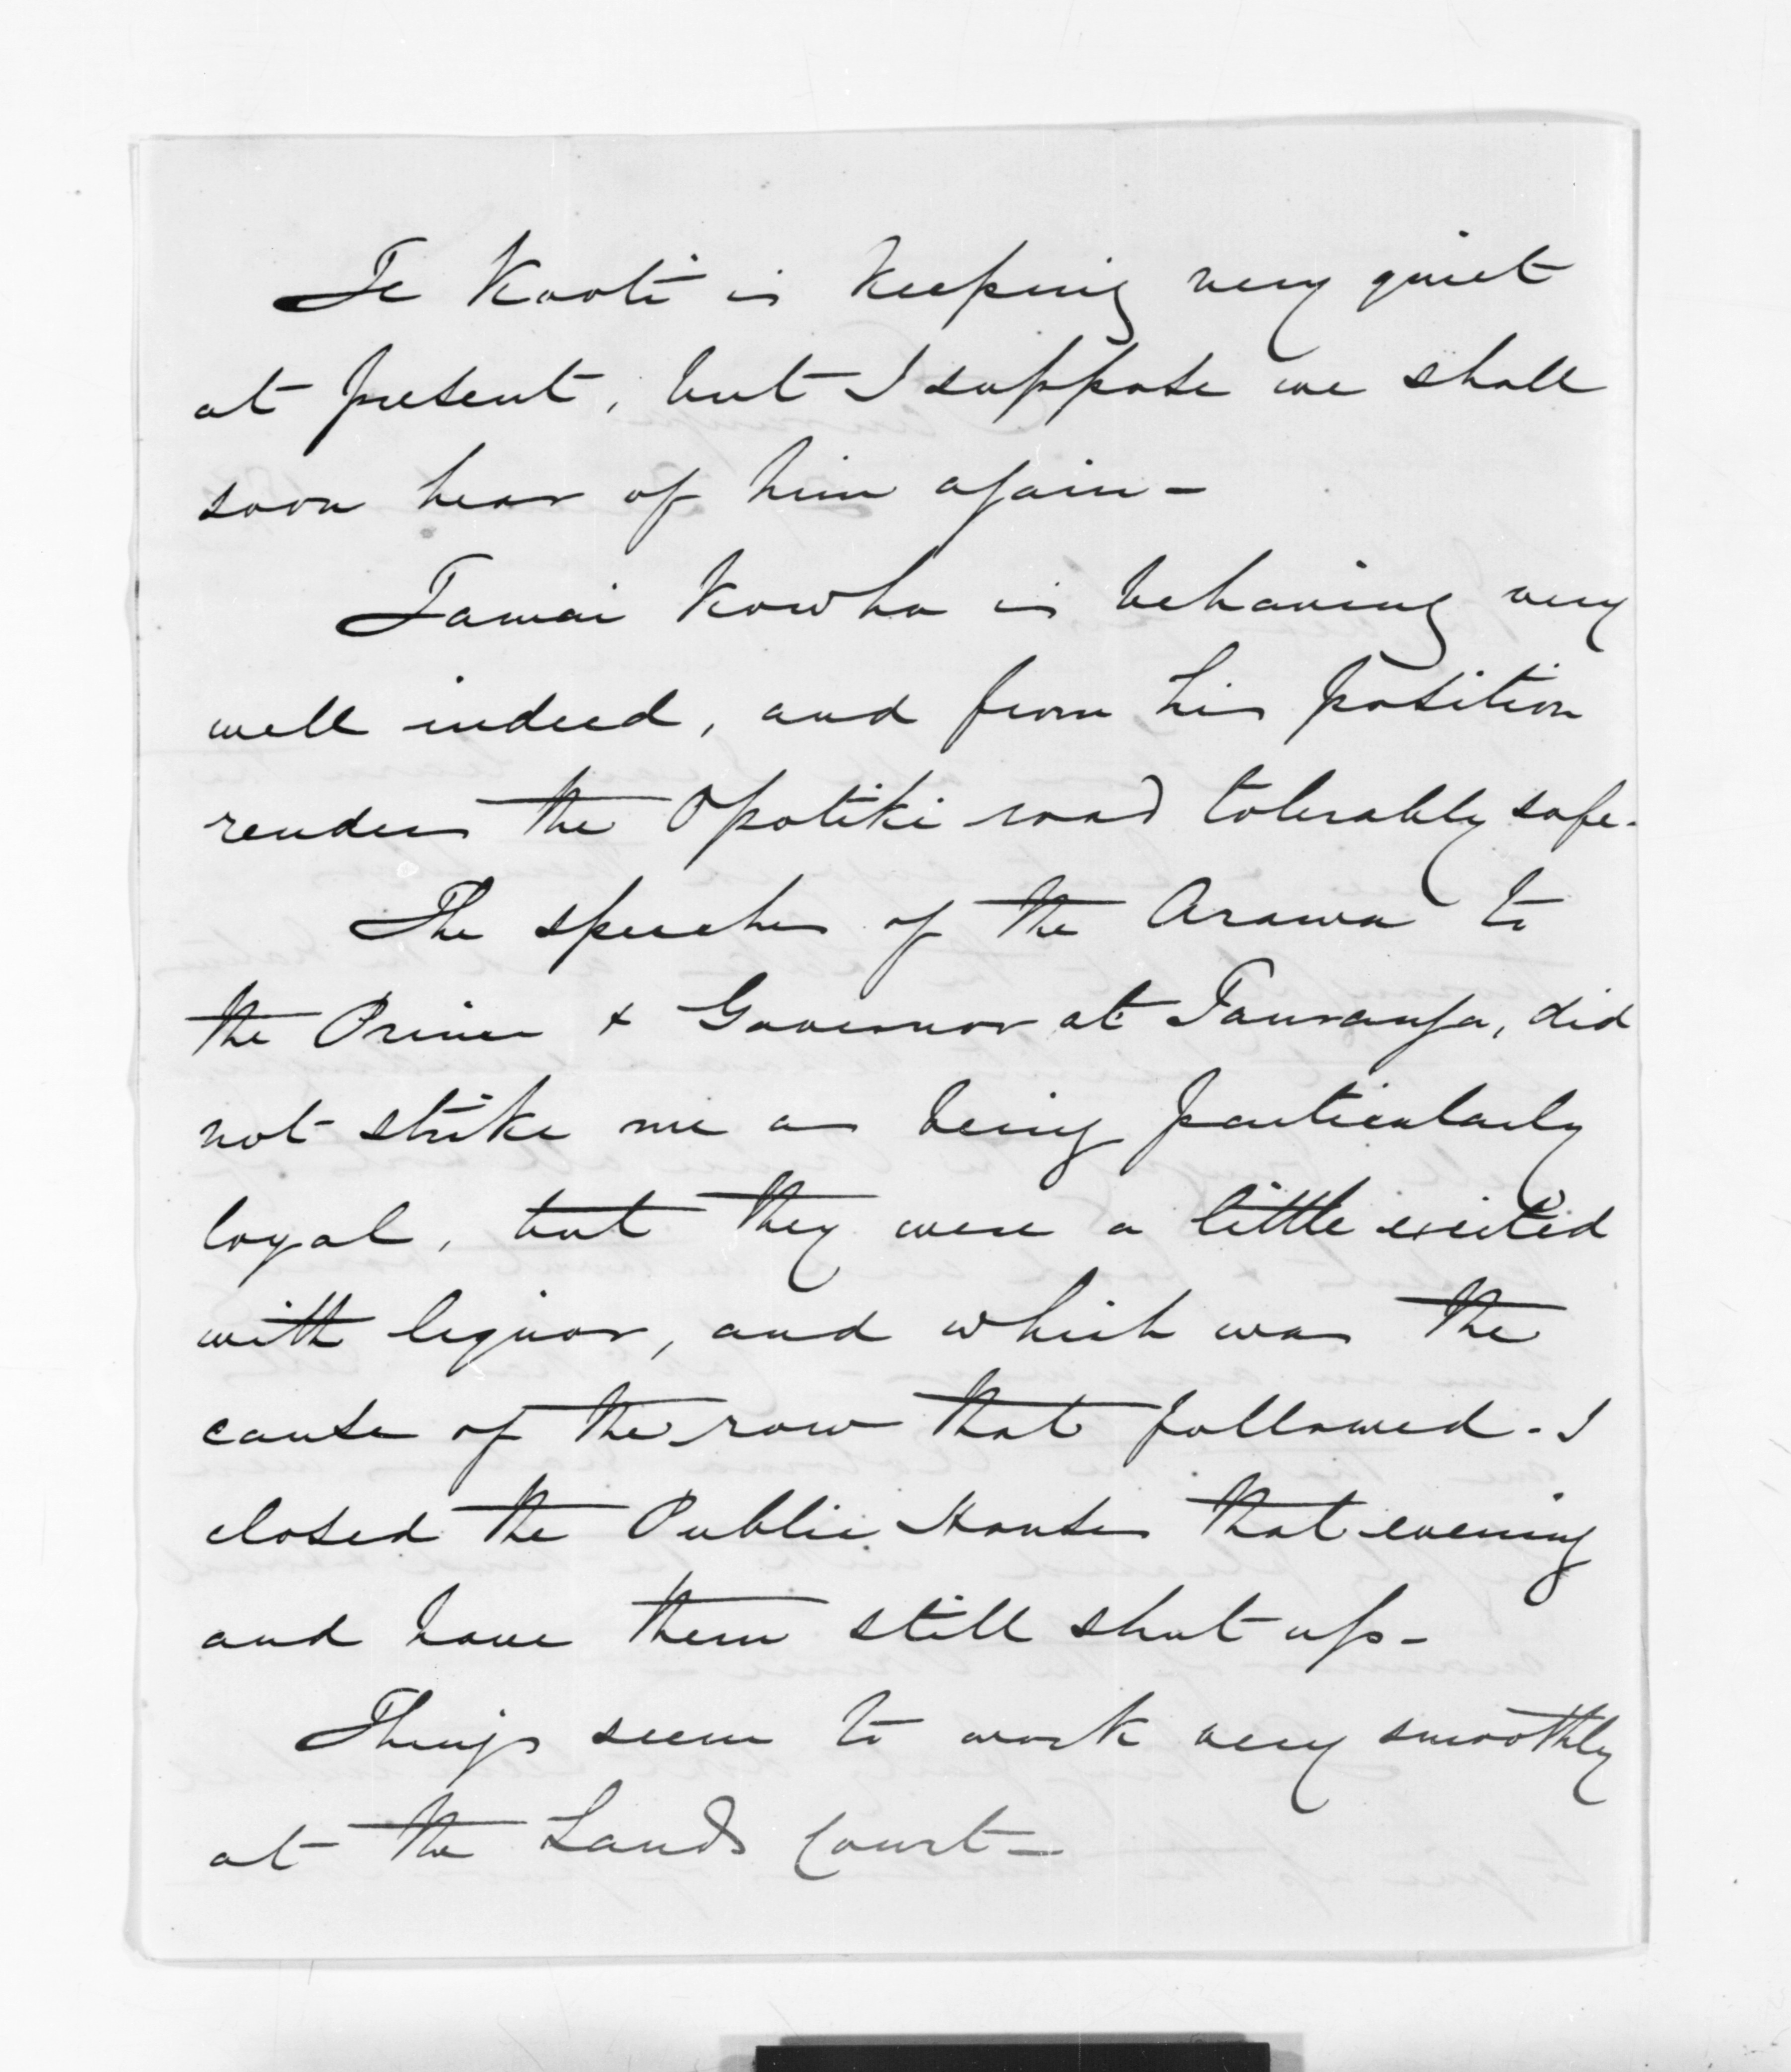 Te Kooti is keeping very quiet
at present, but I suppose we shall
soon hear of him again -
Tamai Kowha is behaving very
well indeed, and from his position
renders the Opotiki road tolerably safe.
The speeches of the Arawa to
the Prince + Governor at Tauranga, did
not strike me as being particularly
loyal, but they were a little excited
with liquor, and which was the
cause of the row that followed. I
closed the Public Houses that evening
and have them still shut up -
Things seem to work very smoothly
at the Lands Court -